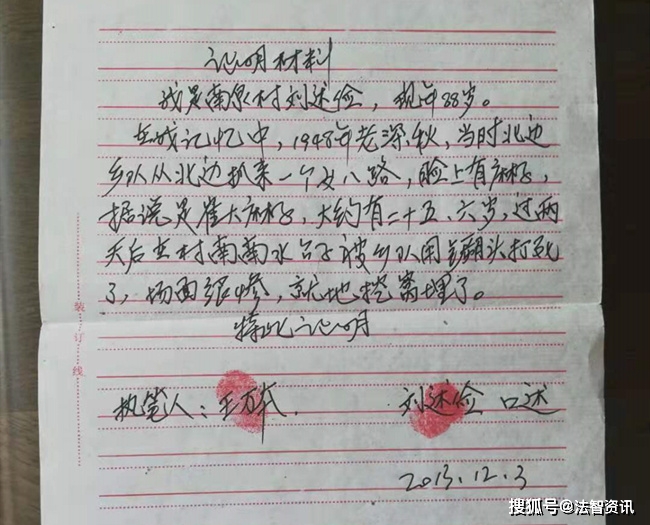 证明材料
我是南泉村刘述俭，现年88岁。
在我记忆中，1948年老深秋，当时北边
乡队从北边抓来一个女八路，脸上有麻子，
据说是崔大麻子，大约有二十五、六岁，过两
天后在村南南水台子被乡队用镢头打死
了，场面很惨，就地挖窝埋了。
特此证明
执笔人：王万 刘述俭 口述
2013.12.3
装订线
搜狐号@法智资讯